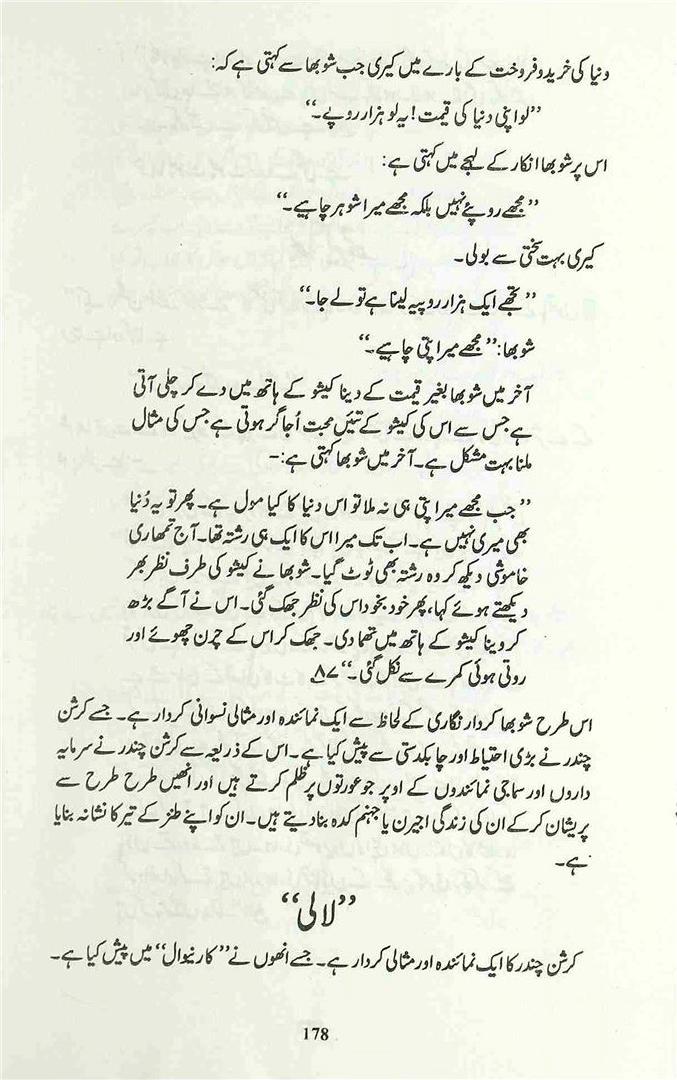 دنیا کی خرید و فروخت کے بارے میں کیری جب شوبھا سے کہتی ہے کہ:
”لو اپنی دنیا کی قیمت! یہ لو ہزار روپے۔“
اس پر شوبھا انکار کے لہجے میں کہتی ہے:
”مجھے روپئے نہیں بلکہ مجھے میرا شوہر چاہیے۔“
کیری بہت سختی سے بولی۔
”تجھے ایک ہزار روپیہ لینا ہے تو لے جا۔“
شوبھا: ”مجھے میرا پتی چاہیے۔“
آخر میں شوبھا بغیر قیمت کے دینا کیشو کے ہاتھ میں دے کر چلی آتی
ہے جس سے اس کی کیشو کے تئیں محبت اُجاگر ہوتی ہے جس کی مثال
ملنا بہت مشکل ہے۔ آخر میں شوبھا کہتی ہے:-
”جب مجھے میرا پتی ہی نہ ملا تو اس دنیا کا کیا مول ہے۔ پھر تو یہ دُنیا
بھی میری نہیں ہے۔ اب تک میرا اس کا ایک ہی رشتہ تھا۔ آج تمھاری
خاموشی دیکھ کر وہ رشتہ بھی ٹوٹ گیا۔ شوبھا نے کیشو کی طرف نظر بھر
دیکھتے ہوئے کہا، پھر خود بخود اس کی نظر جھک گئی۔ اس نے آگے بڑھ
کر وینا کیشو کے ہاتھ میں تھما دی۔ جھک کر اس کے چرن چھوئے اور
روتی ہوئی کمرے سے نکل گئی۔“ ۸۷
اس طرح شوبھا کردار نگاری کے لحاظ سے ایک نمائندہ اور مثالی نسوانی کردار ہے۔ جسے کرشن
چندر نے بڑی احتیاط اور چابکدستی سے پیش کیا ہے۔ اس کے ذریعہ سے کرشن چندر نے سرمایہ
داروں اور سماجی نمائندوں کے اوپر جو عورتوں پر ظلم کرتے ہیں اور انھیں طرح طرح سے
پریشان کر کے ان کی زندگی اجیرن یا جہنم کدہ بنا دیتے ہیں۔ ان کو اپنے طنز کے تیر کا نشانہ بنایا
ہے۔
”لالی“
کرشن چندر کا ایک نمائندہ اور مثالی کردار ہے۔ جسے انھوں نے ”کارنیوال“ میں پیش کیا ہے۔
178